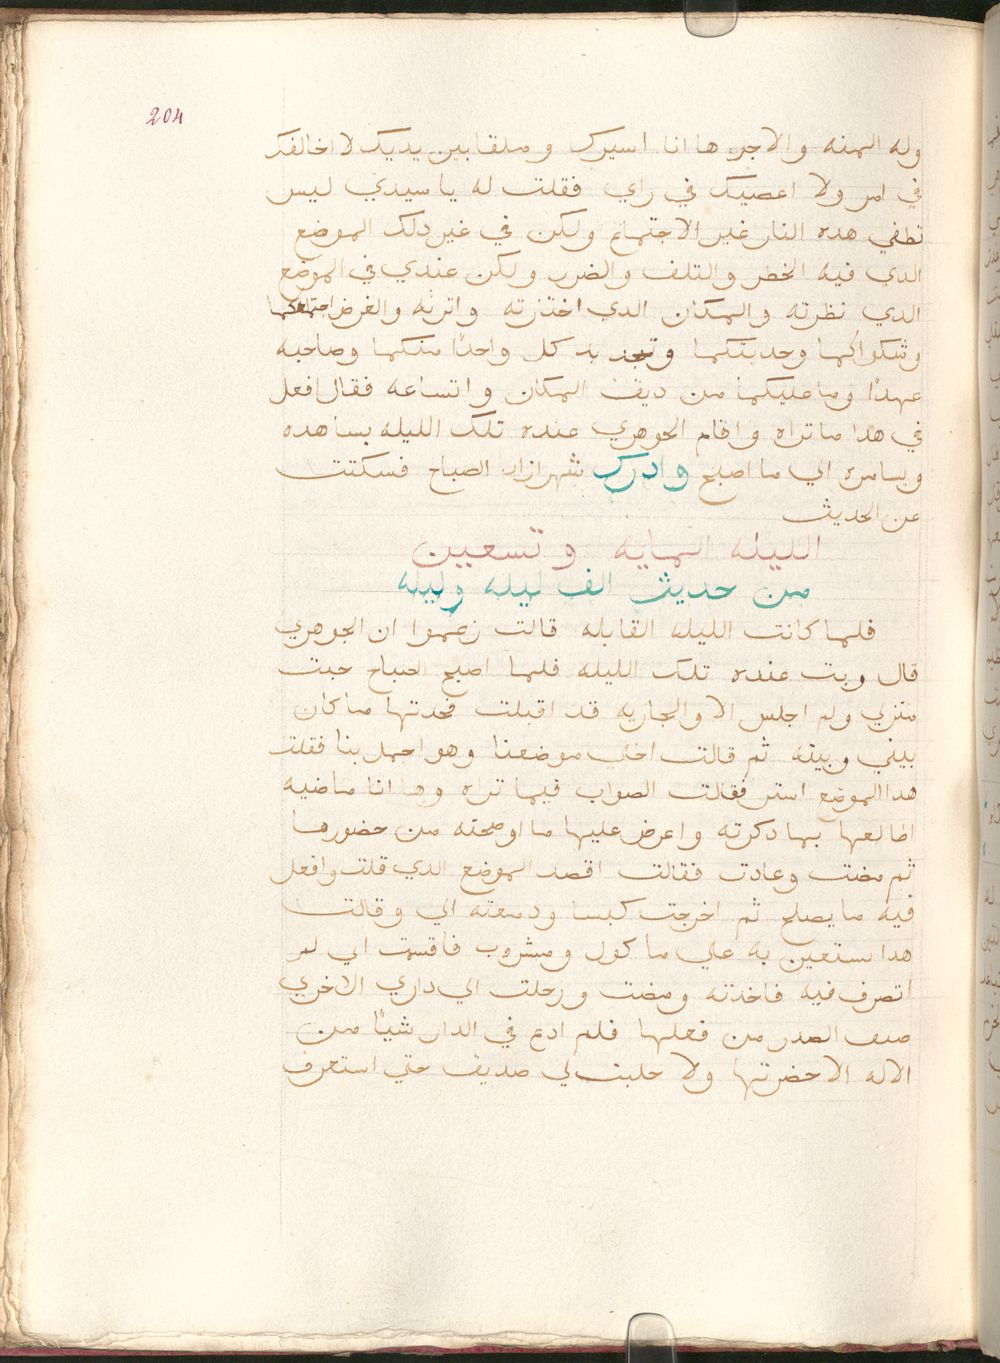 204
وله المنه والاجر ها انا اسيرك وملقا بين يديك لا اخالفك
في امر ولا اعصيك في راي فقلت له يا سيدي ليس
تطفي هده النار غير الاجتماع ولكن في غير دلك الموضع
الدي فيه الخطر والتلف والضرر ولكن عندي في الموضع
الدي نظرته والمكان الدي اخترته واترته والغرض اجتماعكما
وشكواكما وحديتكما وتجديد كل واحدًا منكما وصاحبه
عهدًا وما عليكما من ديق المكان واتساعه فقال افعل
في هدا ما تراه واقام الجوهري عنده تلك الليله يساهده
ويسامره الي ما اصبح وادرك شهرازاد الصباح فسكتت
عن الحديث
الليله المايه وتسعين
من حديث الف ليله وليله
فلما كانت الليله القابله قالت زعموا ان الجوهري
قال وبت عنده تلك الليله فلما اصبح الصباح جيت
منزلي ولم اجلس الا والجاريه قد اقبلت فحدتها ما كان
بيني وبينه ثم قالت اخلي موضعنا وهو اجمل بنا فقلت
هدا الموضع استر فقالت الصواب فيما تراه وها انا ماضيه
اطالعها بما دكرته واعرض عليها ما اوضحته من حضورها
ثم مضت وعادت فقالت اقصد الموضع الدي قلت وافعل
فيه ما يصلح ثم اخرجت كيسا ودفعته الي وقالت
هدا نستعين به علي ماكول ومشروب فاقسمت اني لم
اتصرف فيه فاخدته ومضت ورحلت الي داري الاخري
ضيق الصدر من فعلها فلم ادع في الدار شيًا من
الاله الا حضرتها ولا خليت لي صديق حتي استعرف